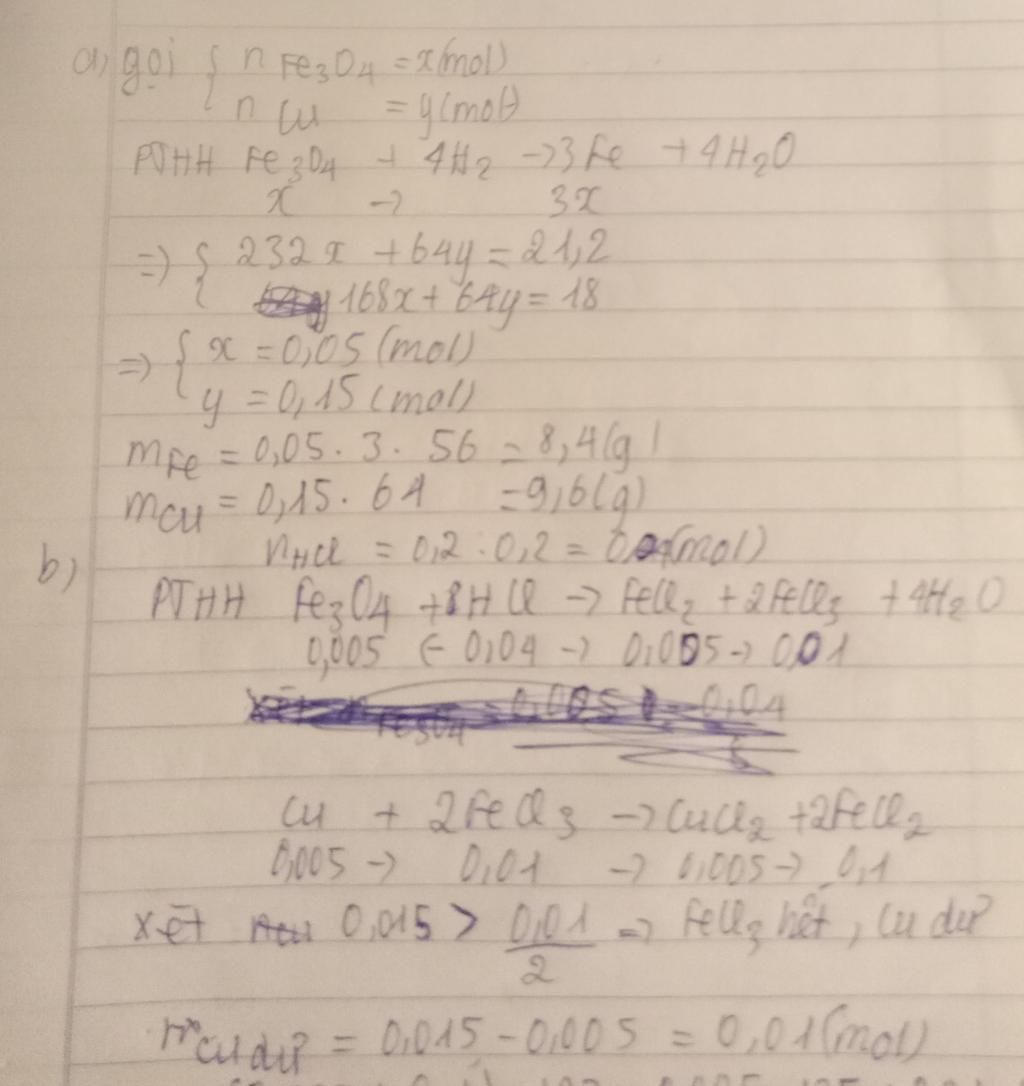 a, gọi { n Fe3O4 = x(mol)
n Cu = y(mol)
PTHH Fe3O4 + 4H2 -> 3Fe + 4H2O
x -> 3x
=> { 232x + 64y = 21,2
168x + 64y = 18
=> { x = 0,05 (mol)
y = 0,15 (mol)
mFe = 0,05 . 3 . 56 = 8,4(g)
mCu = 0,15 . 64 = 9,6(g)
b) nHCl = 0,2 . 0,2 = 0,04(mol)
PTHH Fe3O4 + 8HCl -> FeCl2 + 2FeCl3 + 4H2O
0,005 <- 0,04 -> 0,005 -> 0,01
Fe3O4 0,005 0,04
Cu + 2FeCl3 -> CuCl2 + 2FeCl2
0,005 -> 0,01 -> 0,005 -> 0,1
xét 0,015 > 0,01/2 => FeCl3 hết, Cu dư
Cu dư = 0,015 - 0,005 = 0,01(mol)